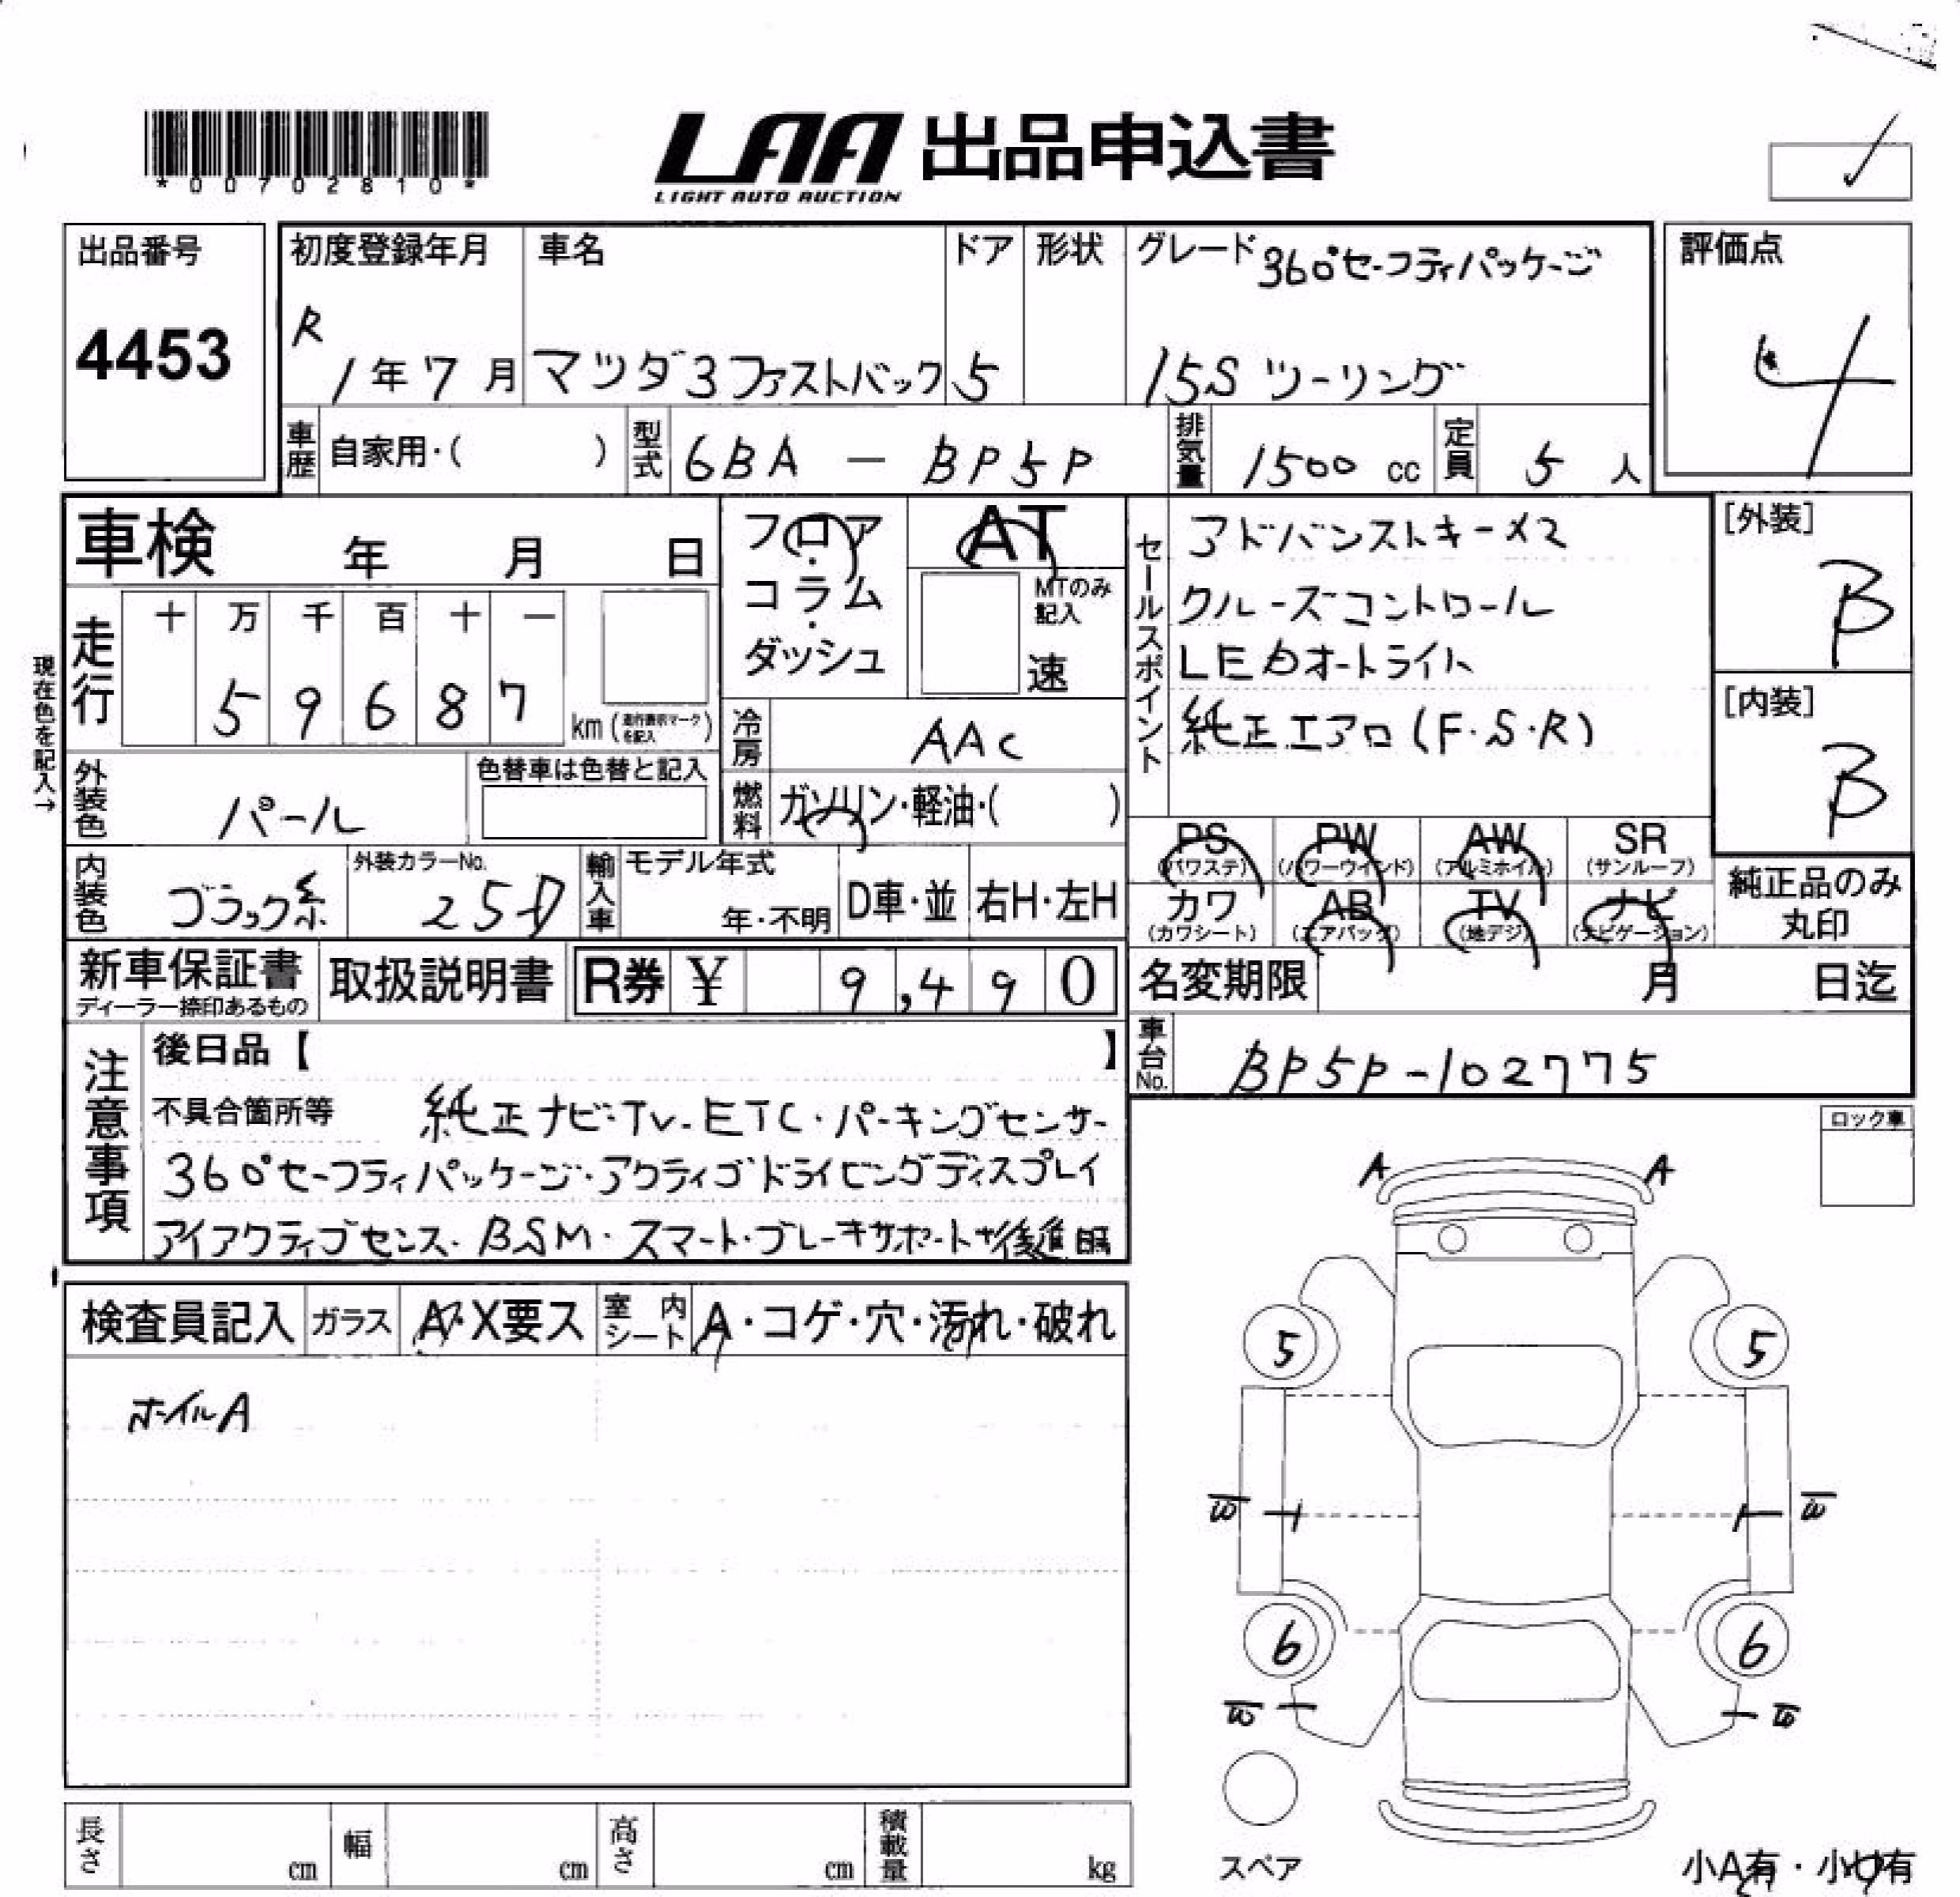 *00702810*
LAA 出品申込書
LIGHT AUTO AUCTION
出品番号
4453
初度登録年月
R
1年7月
車名
マツダ3ファストバック
ドア
5
形状
グレード 360°セーフティパッケージ
15S ツーリング
評価点
4
車歴 自家用・( )
型式 6BA － BP5P
排気量 1500 cc
定員 5 人
車検 年 月 日
フロア・
コラム・
ダッシュ
AT
MTのみ記入
速
セールスポイント
アドバンストキーx2
クルーズコントロール
LEDオートライト
純正エアロ(F.S.R)
[外装]
B
[内装]
B
現在色を記入→
走行
十 万 千 百 十 一
5 9 6 8 7
km (走行表示マークを記入)
冷房 AAC
外装色 パール
色替車は色替と記入
燃料 ガソリン・軽油・( )
PS (パワステ)
PW (パワーウィンド)
AW (アルミホイル)
SR (サンルーフ)
カワ (カワシート)
AB (エアバッグ)
TV (地デジ)
ナビ (ナビゲーション)
純正品のみ
丸印
内装色 ブラック系
外装カラーNo.
25D
輸入車
モデル年式
年・不明
D車・並
右H・左H
新車保証書
ディーラー捺印あるもの
取扱説明書
R券 ¥ 9,490
名変期限 月 日迄
車台No. BP5P-102775
注意事項
後日品【 】
不具合箇所等 純正ナビ・TV・ETC・パーキングセンサー
360°セーフティパッケージ・アクティブドライビングディスプレイ
アイアクティブセンス・BSM・スマート・ブレーキサポート
ロック車
A A
検査員記入
ガラス A・X要ス
室内シート A・コゲ・穴・汚れ・破れ
ホイルA
5 5
6 6
スペア
小A有・小U有
長さ cm
幅 cm
高さ cm
積載量 kg